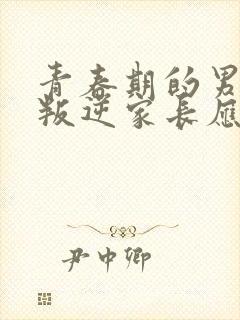 青春期的男
叛逆家长应
尹中卿